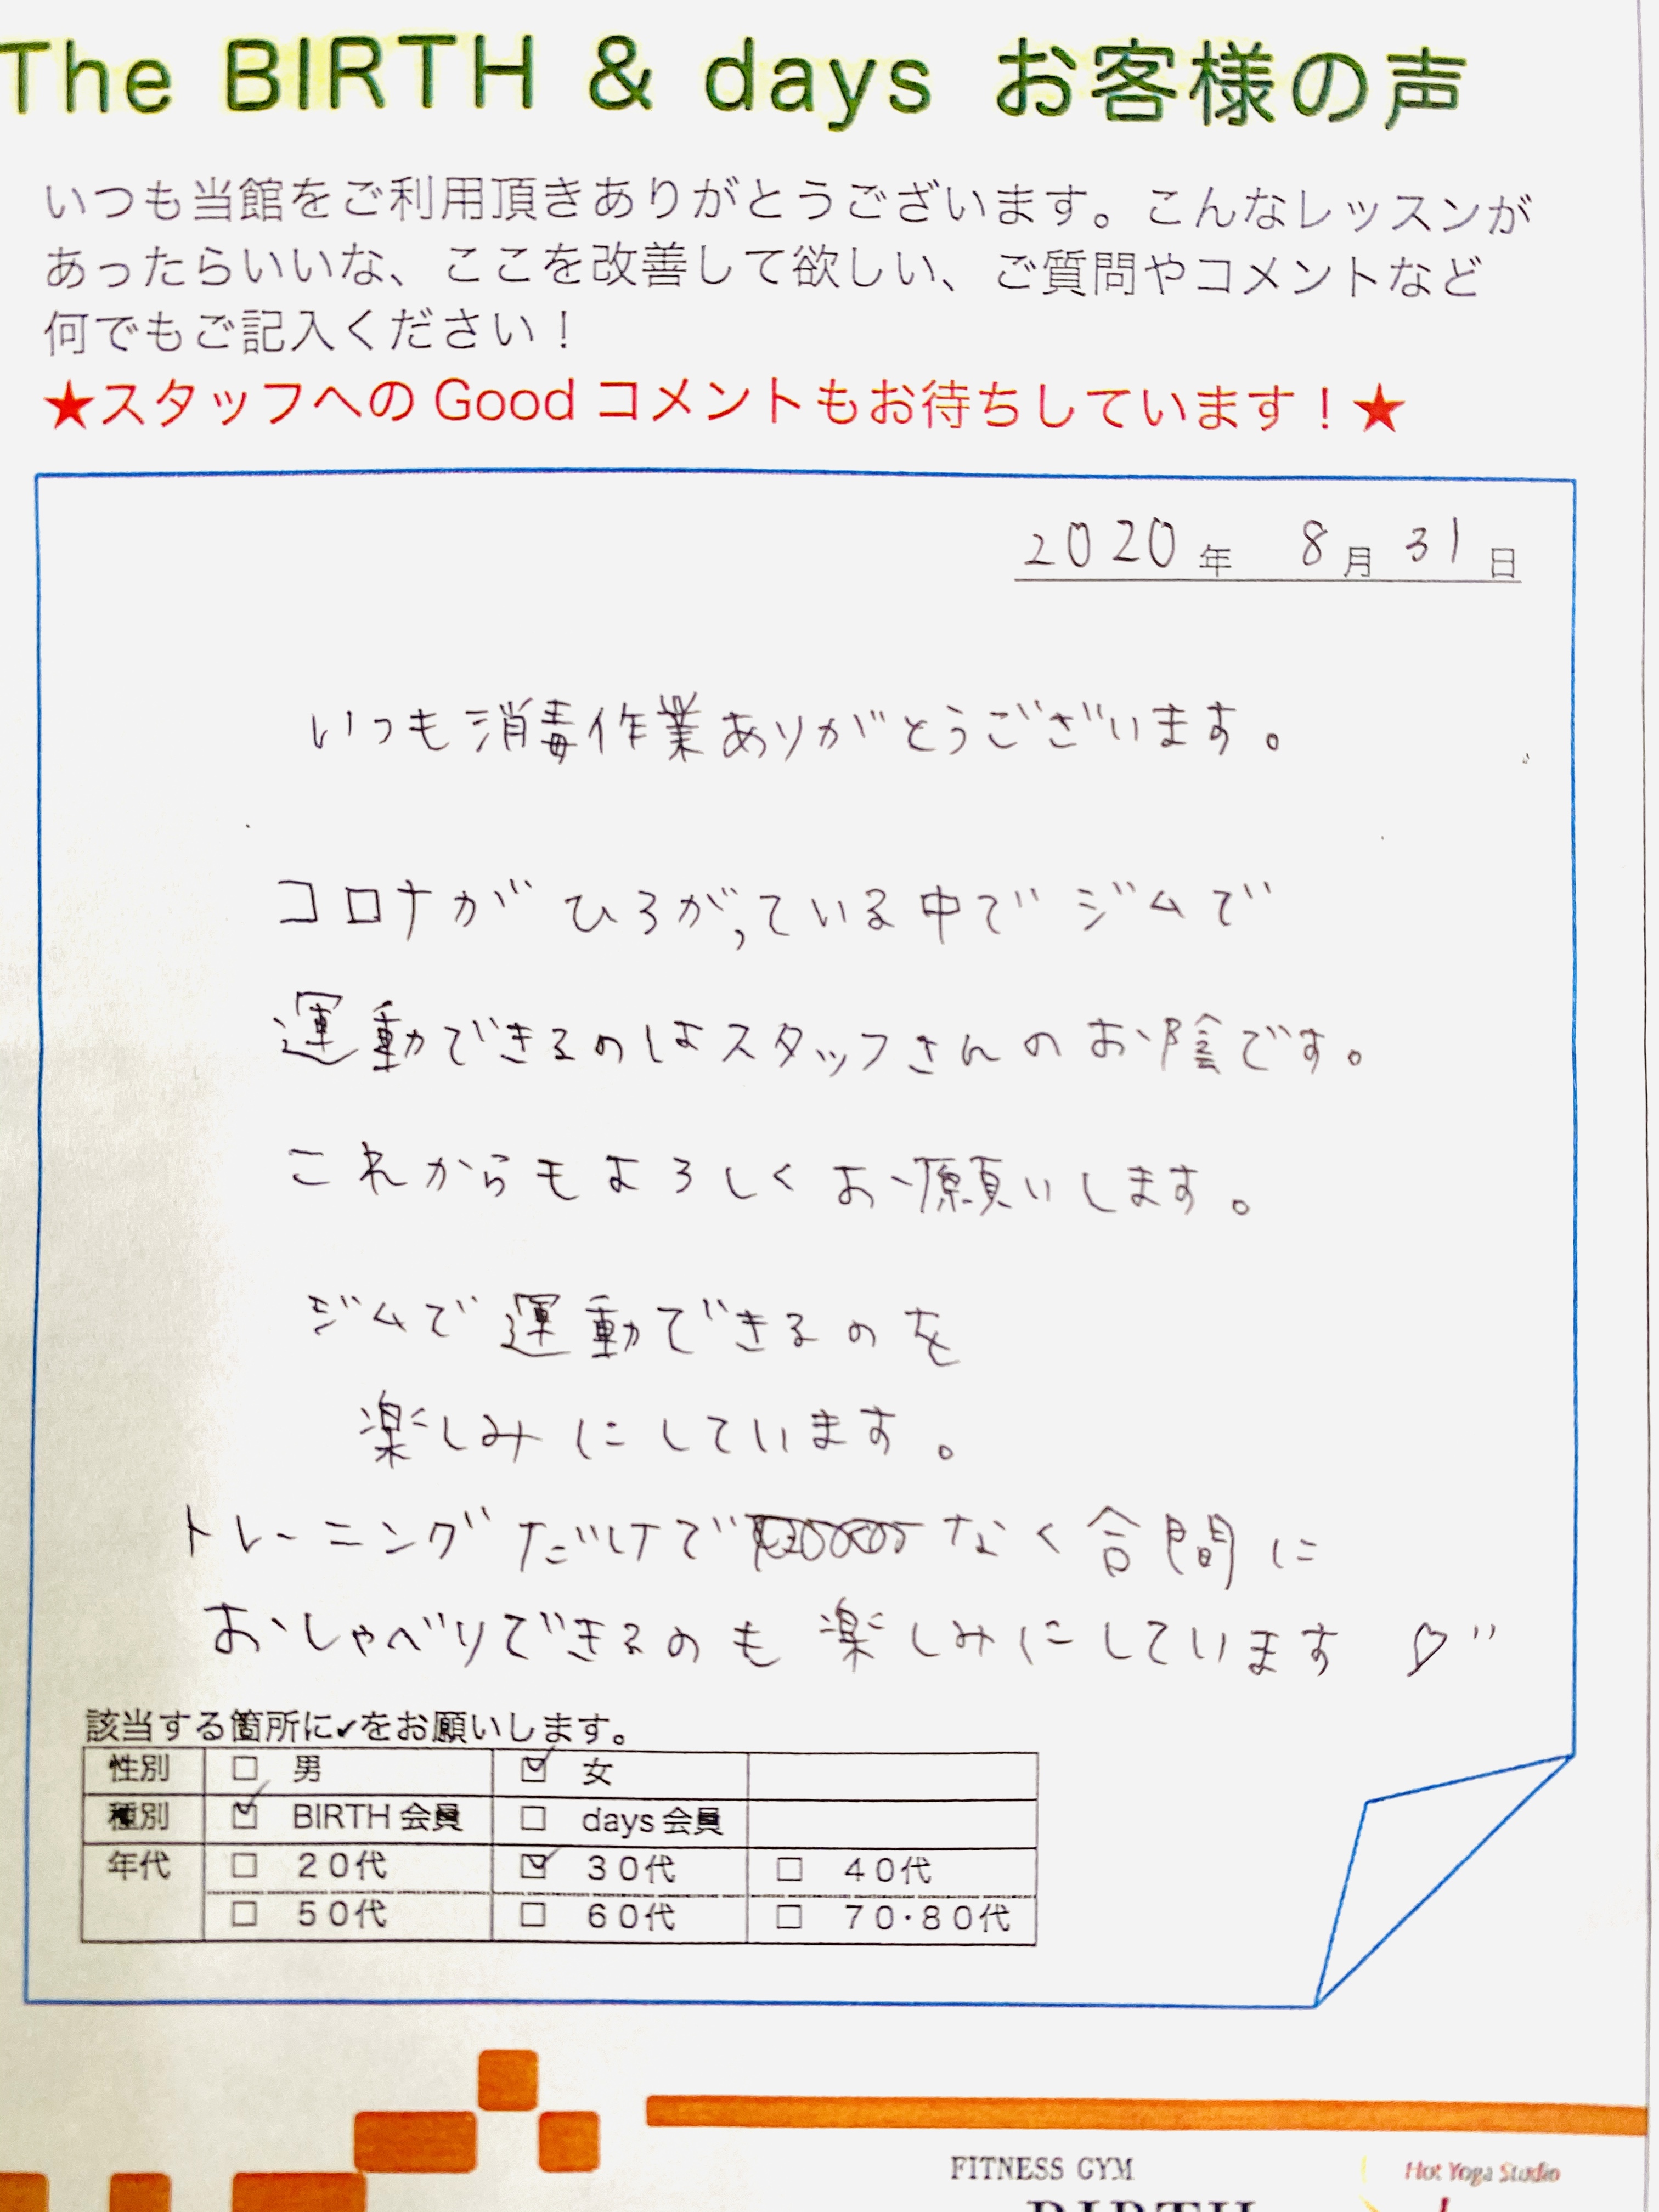 The BIRTH & days お客様の声
いつも当館をご利用頂きありがとうございます。こんなレッスンが
あったらいいな、ここを改善して欲しい、ご質問やコメントなど
何でもご記入ください！
★スタッフへの Good コメントもお待ちしています！★
2020年 8月31日
いつも消毒作業ありがとうございます。
コロナがひろがっている中でジムで
運動できるのはスタッフさんのお陰です。
これからもよろしくお願いします。
ジムで運動できるのを
楽しみにしています。
トレーニングだけでなく合間に
おしゃべりできるのも楽しみにしています♡"
該当する箇所に✔をお願いします。
性別 □ 男 ☑ 女
種別 ☑ BIRTH会員 □ days会員
年代 □ 20代 ☑ 30代 □ 40代
□ 50代 □ 60代 □ 70・80代
FITNESS GYM Hot Yoga Studio
BIRTH